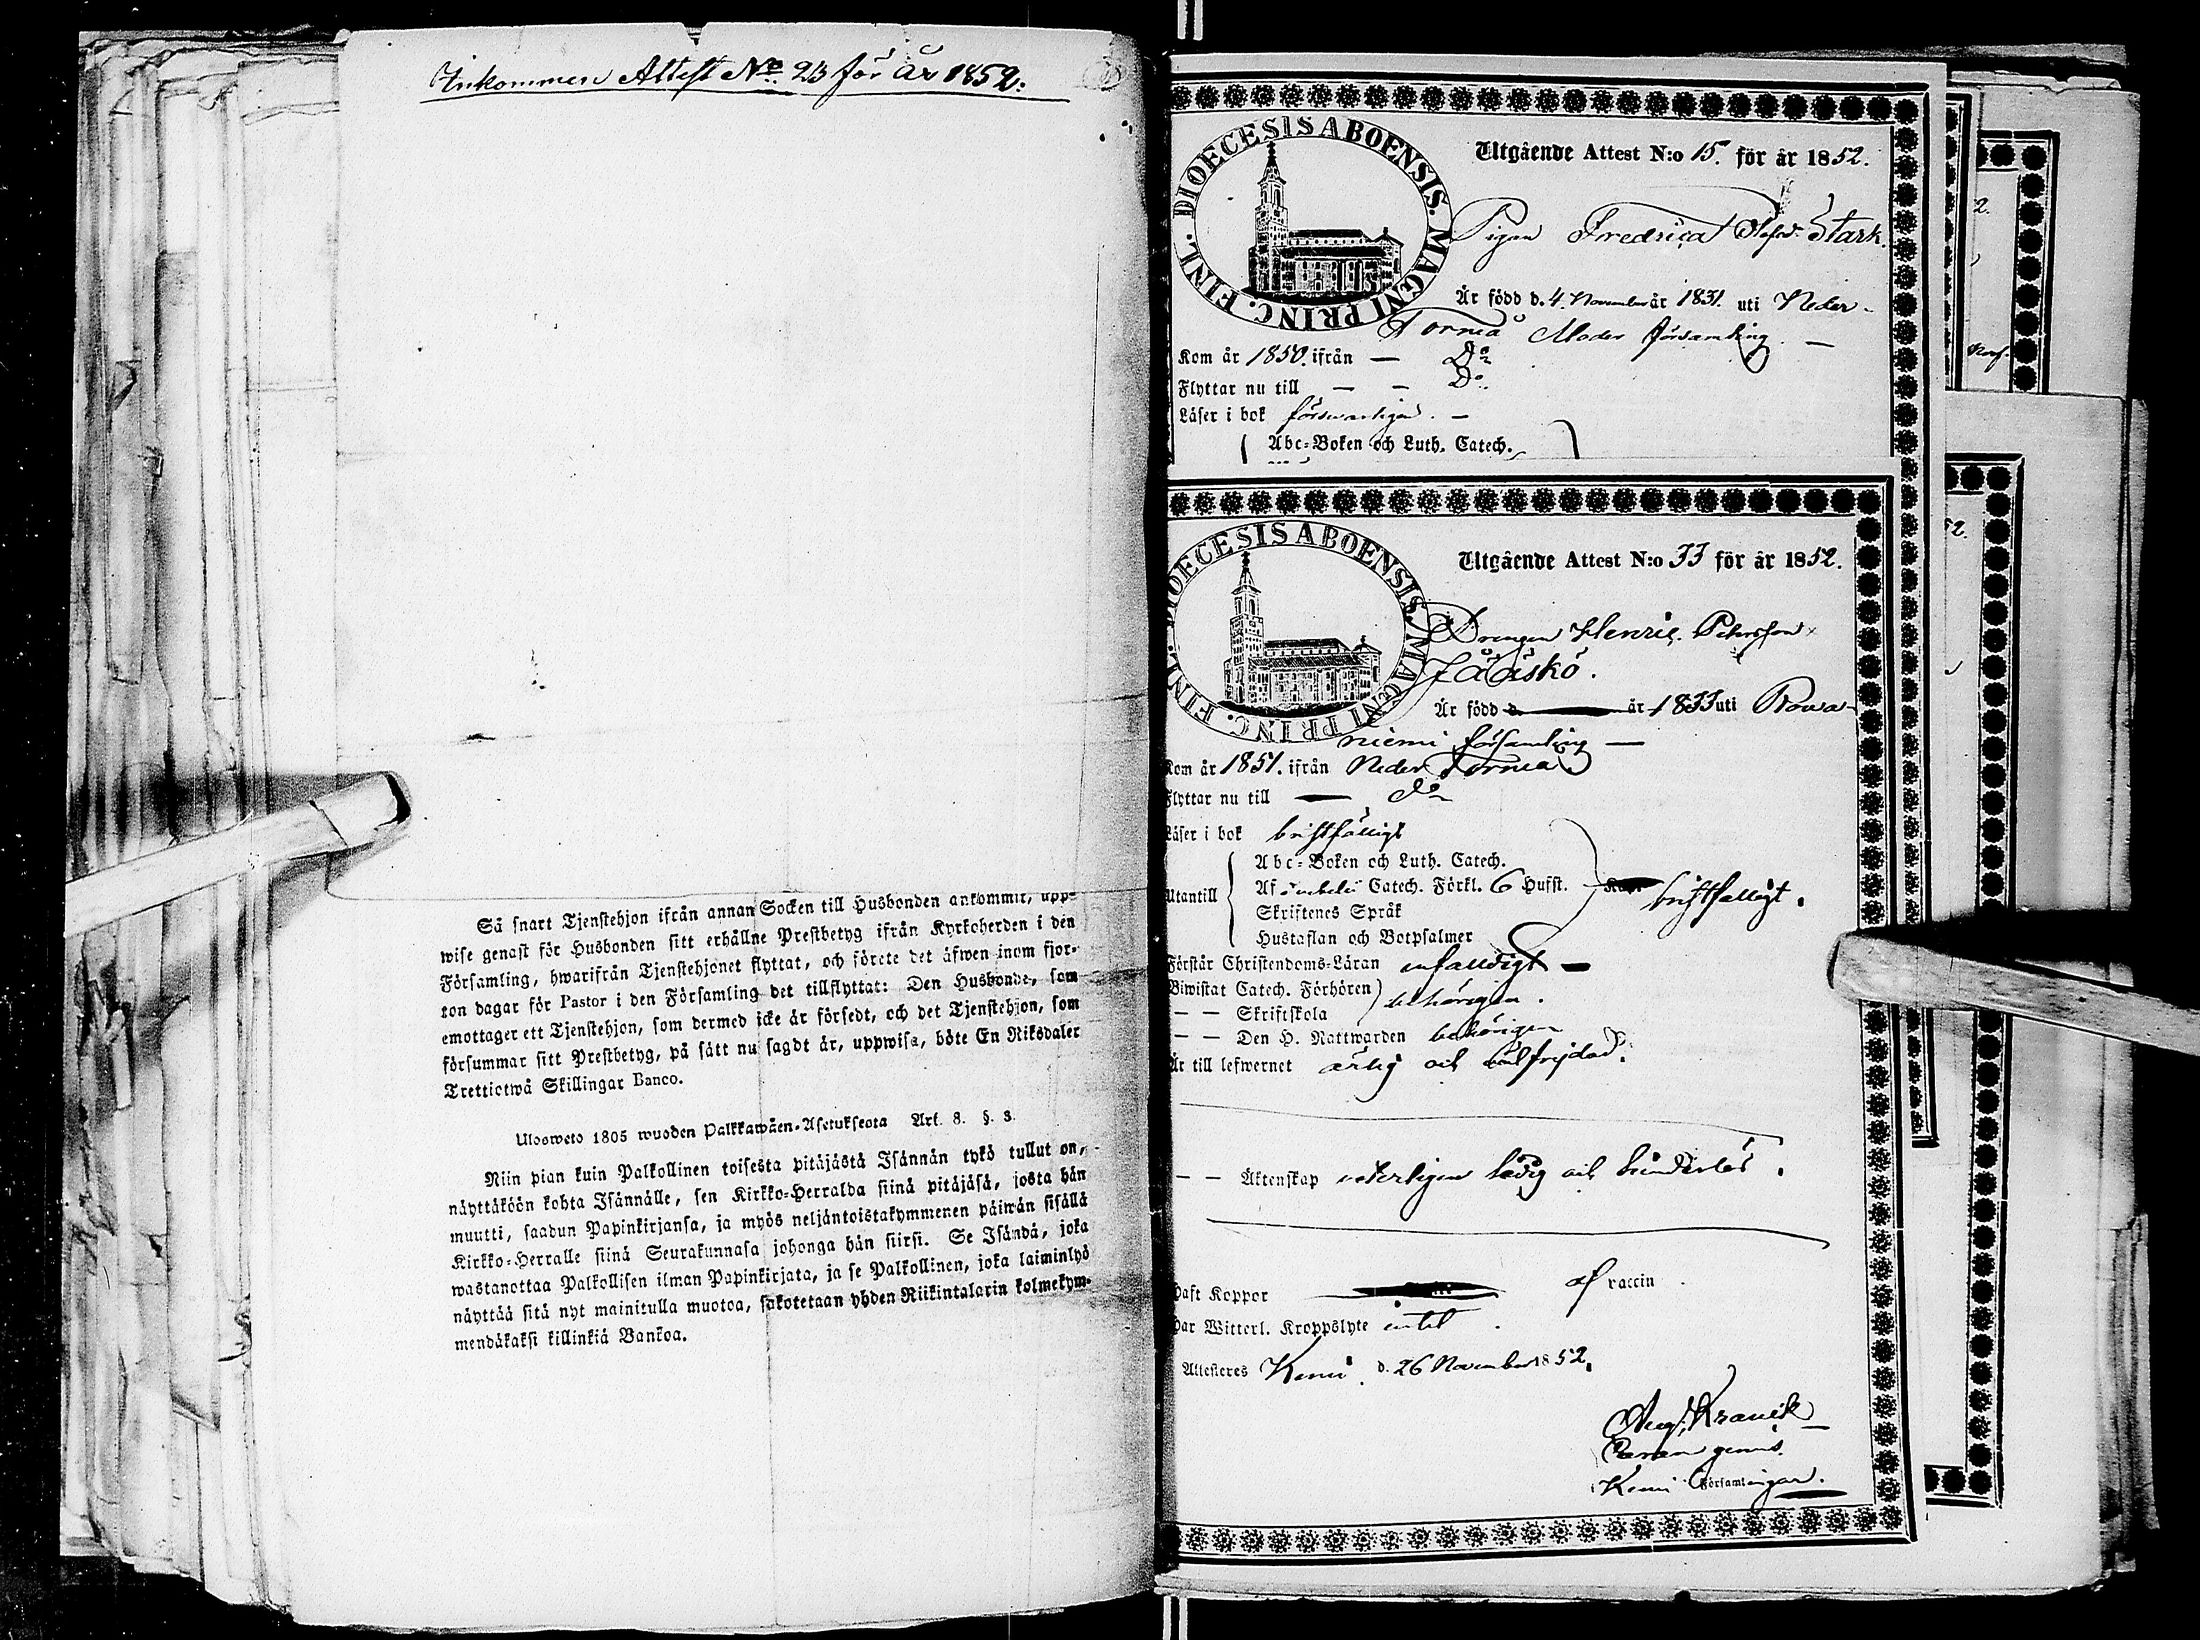 Inkommen Attest No 23 för år 1852.
Så snart Tjenstehjon ifrån annan Socken till Husbonden ankommit, upp-
wise genast för Husbonden sitt erhållne Prestbetyg ifrån Kyrkoherden i den
Församling, hwarifrån Tjenstehjonet flyttat, och förete det äfwen inom fjor-
ton dagar för Pastor i den Församling det tillflyttat: Den Husbonde, som
emottager ett Tjenstehjon, som dermed icke är försedt, och det Tjenstehjon, som
försummar sitt Prestbetyg, på sätt nu sagdt är, uppwisa, böte En Riksdaler
Trettiotwå Skillingar Banco.
Ulosweto 1805 wuoden Palkkawäen-Asetuksesta Art. 8. §. 3.
Niin pian kuin Palkollinen toisesta pitäjästä Isännän tykö tullut on,
näyttäköön kohta Isännälle, sen Kirkko-Herralda siinä pitäjäsä, josta hän
muutti, saadun Papinkirjansa, ja myös neljäntoistakymmenen päiwän sisällä
Kirkko-Herralle siinä Seurakunnasa johonga hän siirsi. Se Isändä, joka
wastanottaa Palkollisen ilman Papinkirjata, ja se Palkollinen, joka laiminlyö
näyttää sitä nyt mainitulla muotoa, sakotetaan yhden Riikintalarin kolmekym-
mendäkaksi killinkiä Bankoa.
DIOECESIS ABOENSIS. MAGNI PRINC. FINL.
Utgående Attest N:o 15. för år 1852.
Pigan Fredrica Stark.
Är född d. 4 November år 1831. uti Neder-
Torneå Moder församling. —
Kom år 1850. ifrån — Do
Flyttar nu till — — Do
Läser i bok försvarligen. —
Abc-Boken och Luth. Catech.
DIOECESIS ABOENSIS. MAGNI PRINC. FINL.
Utgående Attest N:o 33 för år 1852.
Drengen Henric Petersson
Jääskö.
Är född d. år 1833 uti Rowa-
niemi församling —
Kom år 1851. ifrån Neder Torneå
Flyttar nu till — Do
Läser i bok bristfälligt
Abc-Boken och Luth. Catech.
Utantill Af Catech. Förkl. 6 Hufst. bristfälligt.
Skriftenes Språk
Hustaflan och Botpsalmer
Förstår Christendoms-Läran enfaldigt —
Biwistat Catech. Förhören
behörigen.
— — Skriftskola
— — Den H. Nattwarden behörigen
Är till lefwernet ärlig och välfrejdad.
— — Äktenskap veterligen ledig och hinderlös.
Haft Koppor af vaccin
Har Witterl. Kroppslyte intet.
Attesteres Kemi. d. 26 November 1852.
Aug. Kranck
Kemi Församlingar.